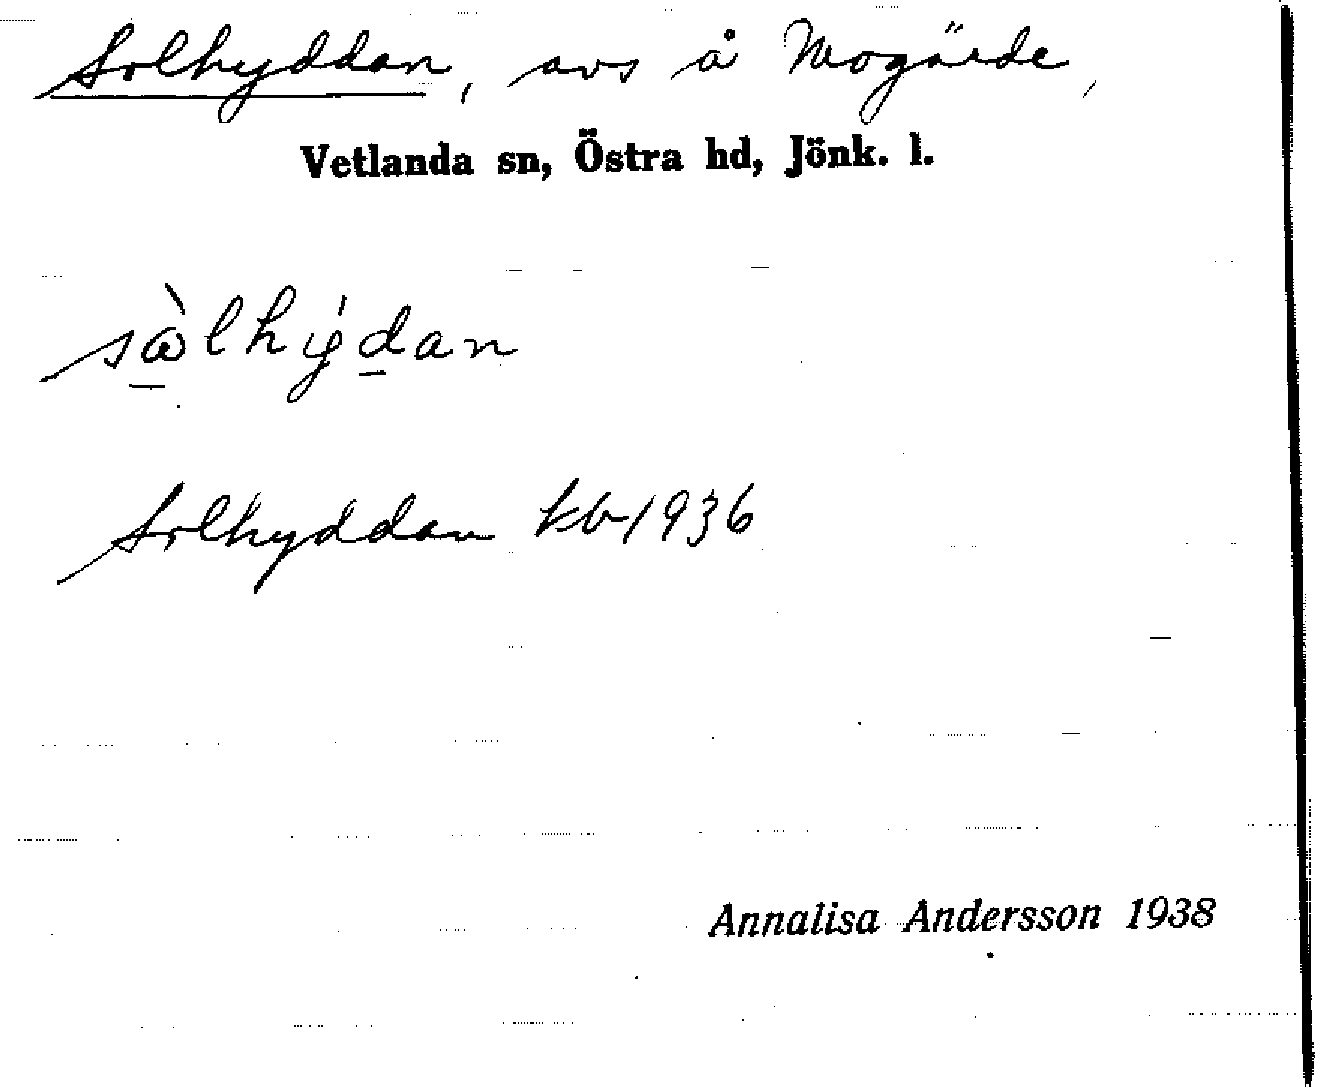 Solhyddan, avs å Mogärde,
Vetlanda sn, Östra hd, Jönk. l.
sòlhýdan
Solhyddan kb 1936
Annalisa Andersson 1938